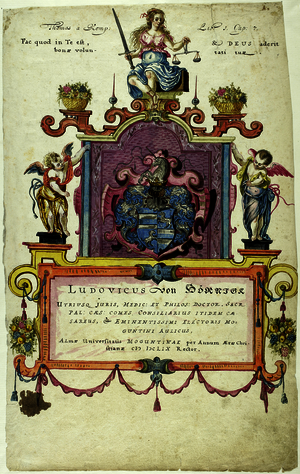 Thomas a Kemp: Lib. 1. Cap. 7.
Fac quod in Te est, & DEUS aderit
bonæ volun- tati tuæ
LUDOVICUS von HÖRNIGK
UTRIUSQ JURIS, MEDIC: ET PHILOS: DOCTOR, SACR.
PAL: CÆS: COMES, CONSILIARIUS ITIDEM CÆ
SAREUS, & EMINENTISSIMI ELECTORIS MO
GUNTINI AULICUS,
Almæ Universitatis MOGUNTINÆ per Annum Æræ Chri
stianæ CIƆ.IƆCLIX Rector.